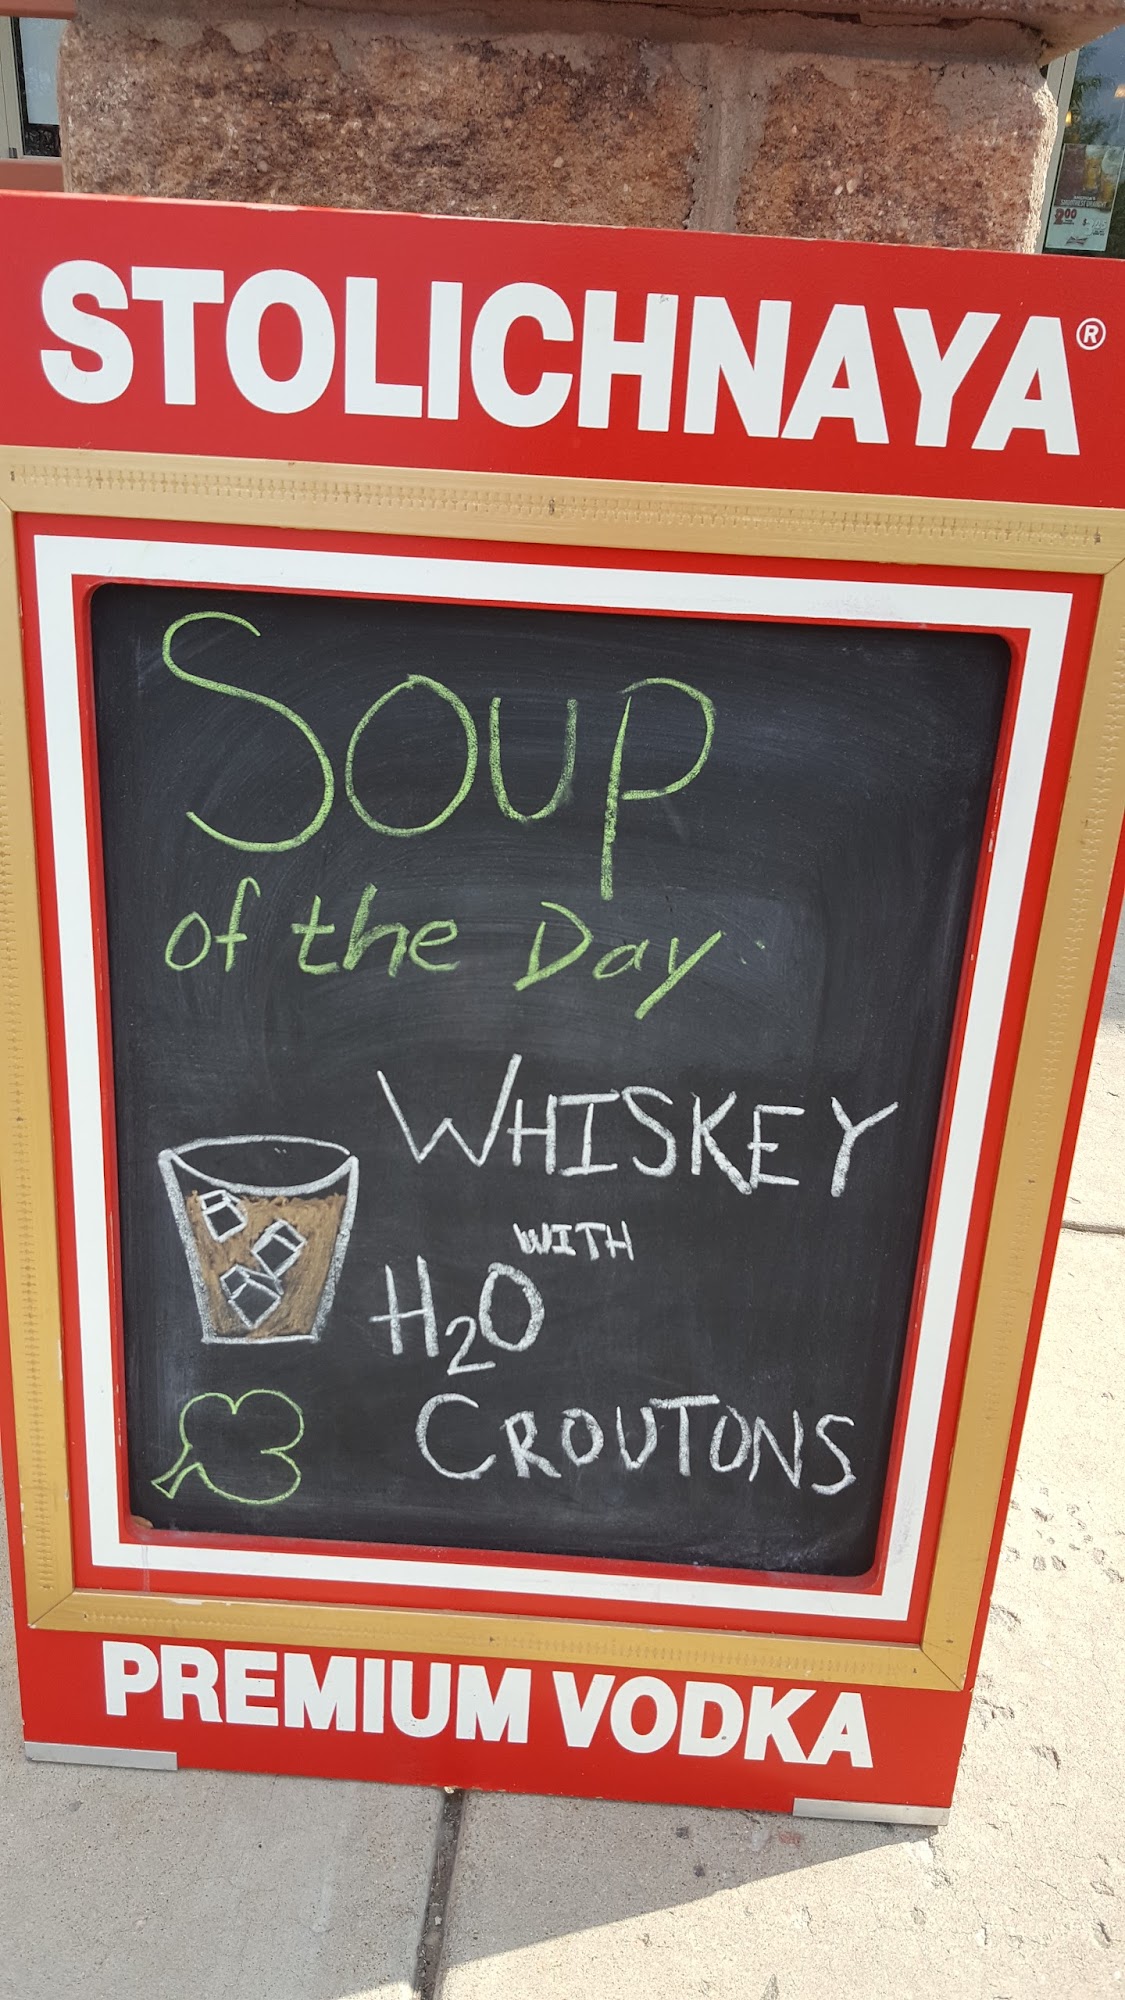 STOLICHNAYA®
Soup
of the Day
WHISKEY
WITH
H₂O
CROUTONS
PREMIUM VODKA
2.00